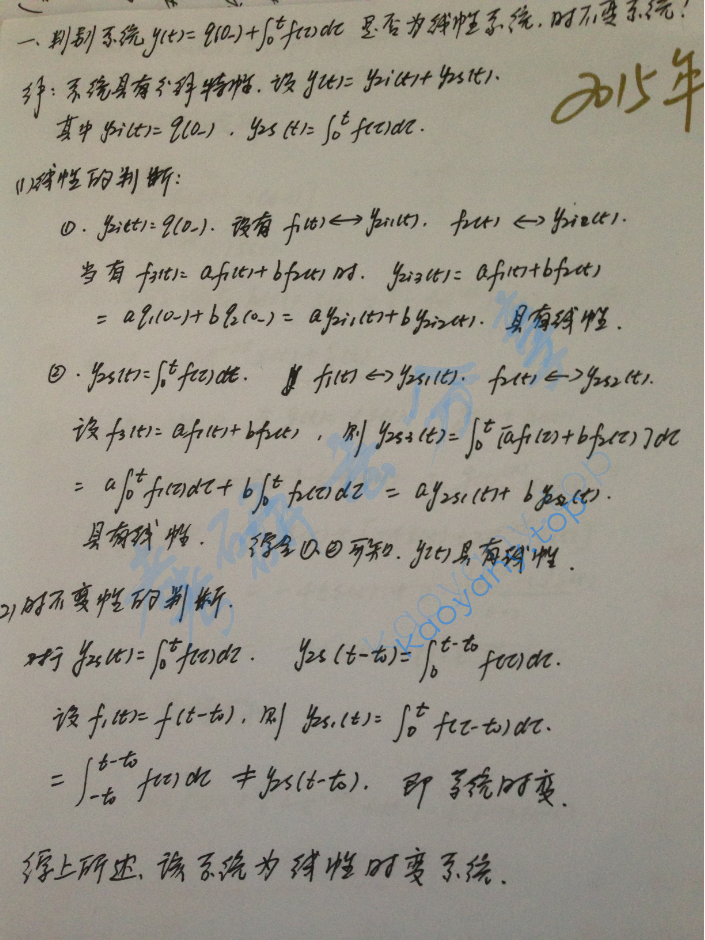 一、判别系统y(t)=q(0-)+∫₀ᵗf(τ)dτ 是否为线性系统,时不变系统!
2015年
解:系统具有分解特性. 设 y(t)=yzi(t)+yzs(t).
其中 yzi(t)=q(0-), yzs(t)=∫₀ᵗf(τ)dτ.
(1)线性的判断:
①. yzi(t)=q(0-). 设有 f₁(t)↔yzi₁(t). f₂(t)↔yzi₂(t).
当有 f₃(t)=af₁(t)+bf₂(t)时. yzi₃(t)=af₁(t)+bf₂(t)
=aq₁(0-)+bq₂(0-)=ayzi₁(t)+byzi₂(t). 具有线性.
②. yzs(t)=∫₀ᵗf(τ)dτ. f₁(t)↔yzs₁(t). f₂(t)↔yzs₂(t).
设f₃(t)=af₁(t)+bf₂(t), 则 yzs₃(t)=∫₀ᵗ[af₁(τ)+bf₂(τ)]dτ
=a∫₀ᵗf₁(τ)dτ+b∫₀ᵗf₂(τ)dτ=ayzs₁(t)+byzs₂(t).
具有线性. 综合①,②可知. y(t)具有线性.
2)时不变性的判断.
对于yzs(t)=∫₀ᵗf(τ)dτ. yzs(t-t₀)=∫₀ᵗ⁻ᵗ⁰f(τ)dτ.
设f₁(t)=f(t-t₀), 则 yzs₁(t)=∫₀ᵗf(τ-t₀)dτ.
=∫₋ₜ₀ᵗ⁻ᵗ⁰f(τ)dτ≠yzs(t-t₀). 即系统时变.
综上所述,该系统为线性时变系统.
kaoyany.top